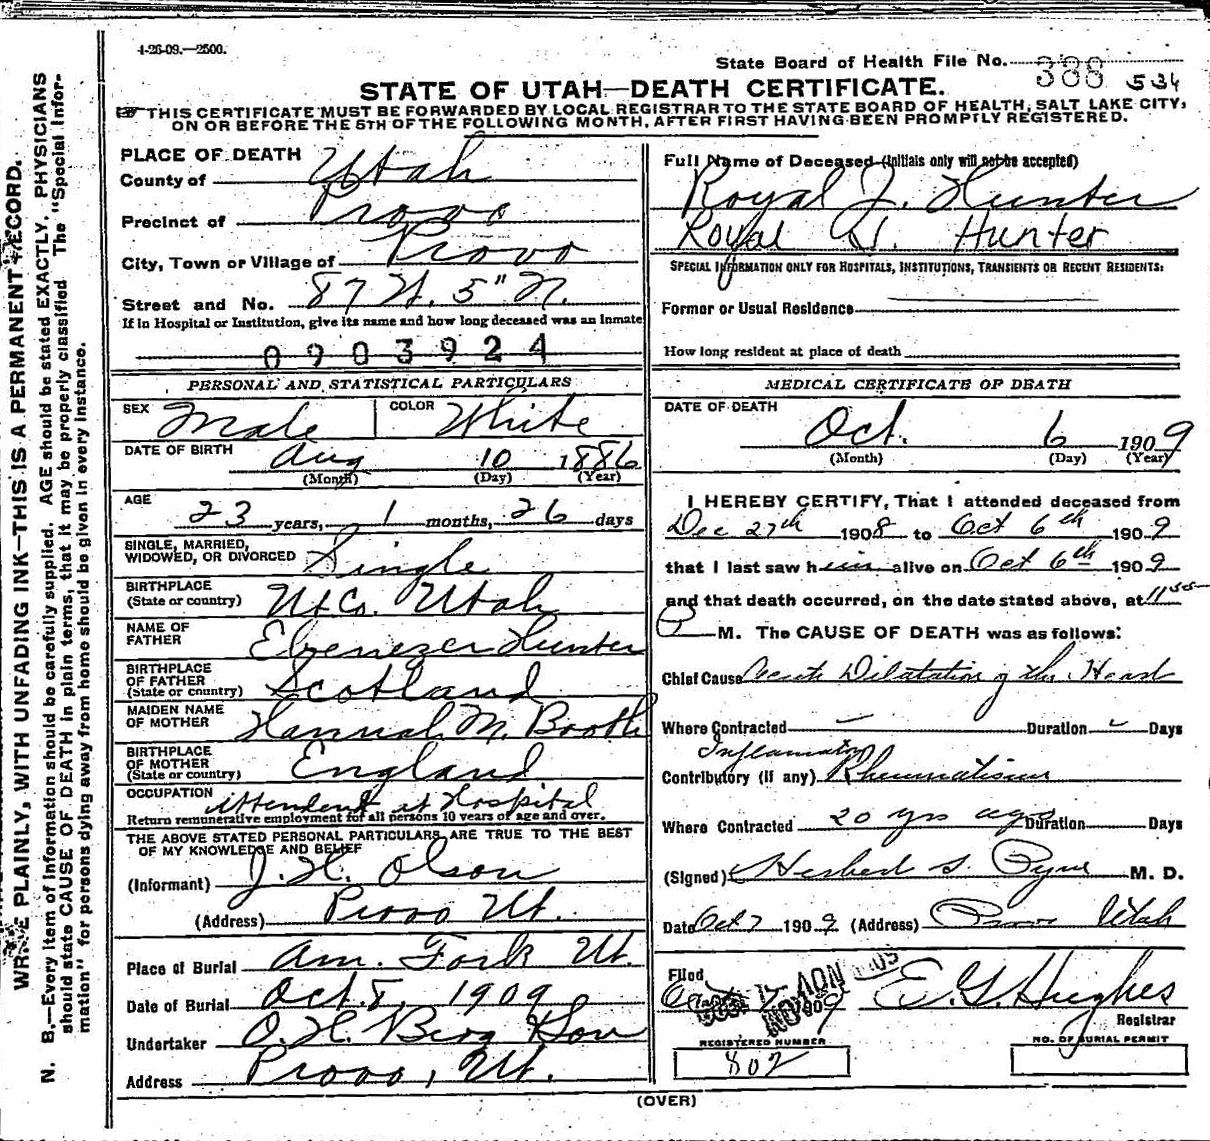 4-26-09.—2500.
State Board of Health File No. 388 534
STATE OF UTAH—DEATH CERTIFICATE.
THIS CERTIFICATE MUST BE FORWARDED BY LOCAL REGISTRAR TO THE STATE BOARD OF HEALTH, SALT LAKE CITY,
ON OR BEFORE THE 5TH OF THE FOLLOWING MONTH, AFTER FIRST HAVING BEEN PROMPTLY REGISTERED.
WRITE PLAINLY, WITH UNFADING INK—THIS IS A PERMANENT RECORD.
N. B.—Every item of information should be carefully supplied. AGE should be stated EXACTLY. PHYSICIANS
should state CAUSE OF DEATH in plain terms, that it may be properly classified. The "Special Infor-
mation" for persons dying away from home should be given in every instance.
PLACE OF DEATH
County of Utah
Precinct of Provo
City, Town or Village of Provo
Street and No. 87 W. 5" N.
If in Hospital or Institution, give its name and how long deceased was an inmate
0903924
PERSONAL AND STATISTICAL PARTICULARS
SEX Male COLOR White
DATE OF BIRTH Aug 10 1886
(Month) (Day) (Year)
AGE
23 years, 1 months, 26 days
SINGLE, MARRIED,
WIDOWED, OR DIVORCED Single
BIRTHPLACE
(State or country) Ut Co. Utah
NAME OF
FATHER Ebenezer Hunter
BIRTHPLACE
OF FATHER
(State or country) Scotland
MAIDEN NAME
OF MOTHER Hannah M. Booth
BIRTHPLACE
OF MOTHER
(State or country) England
OCCUPATION Attendent at Hospital
Return remunerative employment for all persons 10 years of age and over.
THE ABOVE STATED PERSONAL PARTICULARS ARE TRUE TO THE BEST
OF MY KNOWLEDGE AND BELIEF
(Informant) J. H. Olson
(Address) Provo Ut.
Place of Burial Am. Fork Ut.
Date of Burial Oct. 8, 1909
Undertaker O. H. Berg & Son
Address Provo, Ut.
Full Name of Deceased (Initials only will not be accepted)
Royal J. Hunter
Royal Hunter
SPECIAL INFORMATION ONLY FOR HOSPITALS, INSTITUTIONS, TRANSIENTS OR RECENT RESIDENTS:
Former or Usual Residence
How long resident at place of death
MEDICAL CERTIFICATE OF DEATH
DATE OF DEATH
Oct. 6 1909
(Month) (Day) (Year)
I HEREBY CERTIFY, That I attended deceased from
Dec 27th 1908 to Oct 6th 1909
that I last saw him alive on Oct 6th 1909
and that death occurred, on the date stated above, at 11 55
P M. The CAUSE OF DEATH was as follows:
Chief Cause Acute Dilatation of the Heart
Where Contracted Duration Days
Inflamatory
Contributory (if any) Rheumatism
Where Contracted 20 yrs ago Duration Days
(Signed) Herbert S. Pyne M. D.
Date Oct 7 1909 (Address) Provo Utah
Filed
E. G. Hughes
Registrar
REGISTERED NUMBER
802
NO. OF BURIAL PERMIT
(OVER)